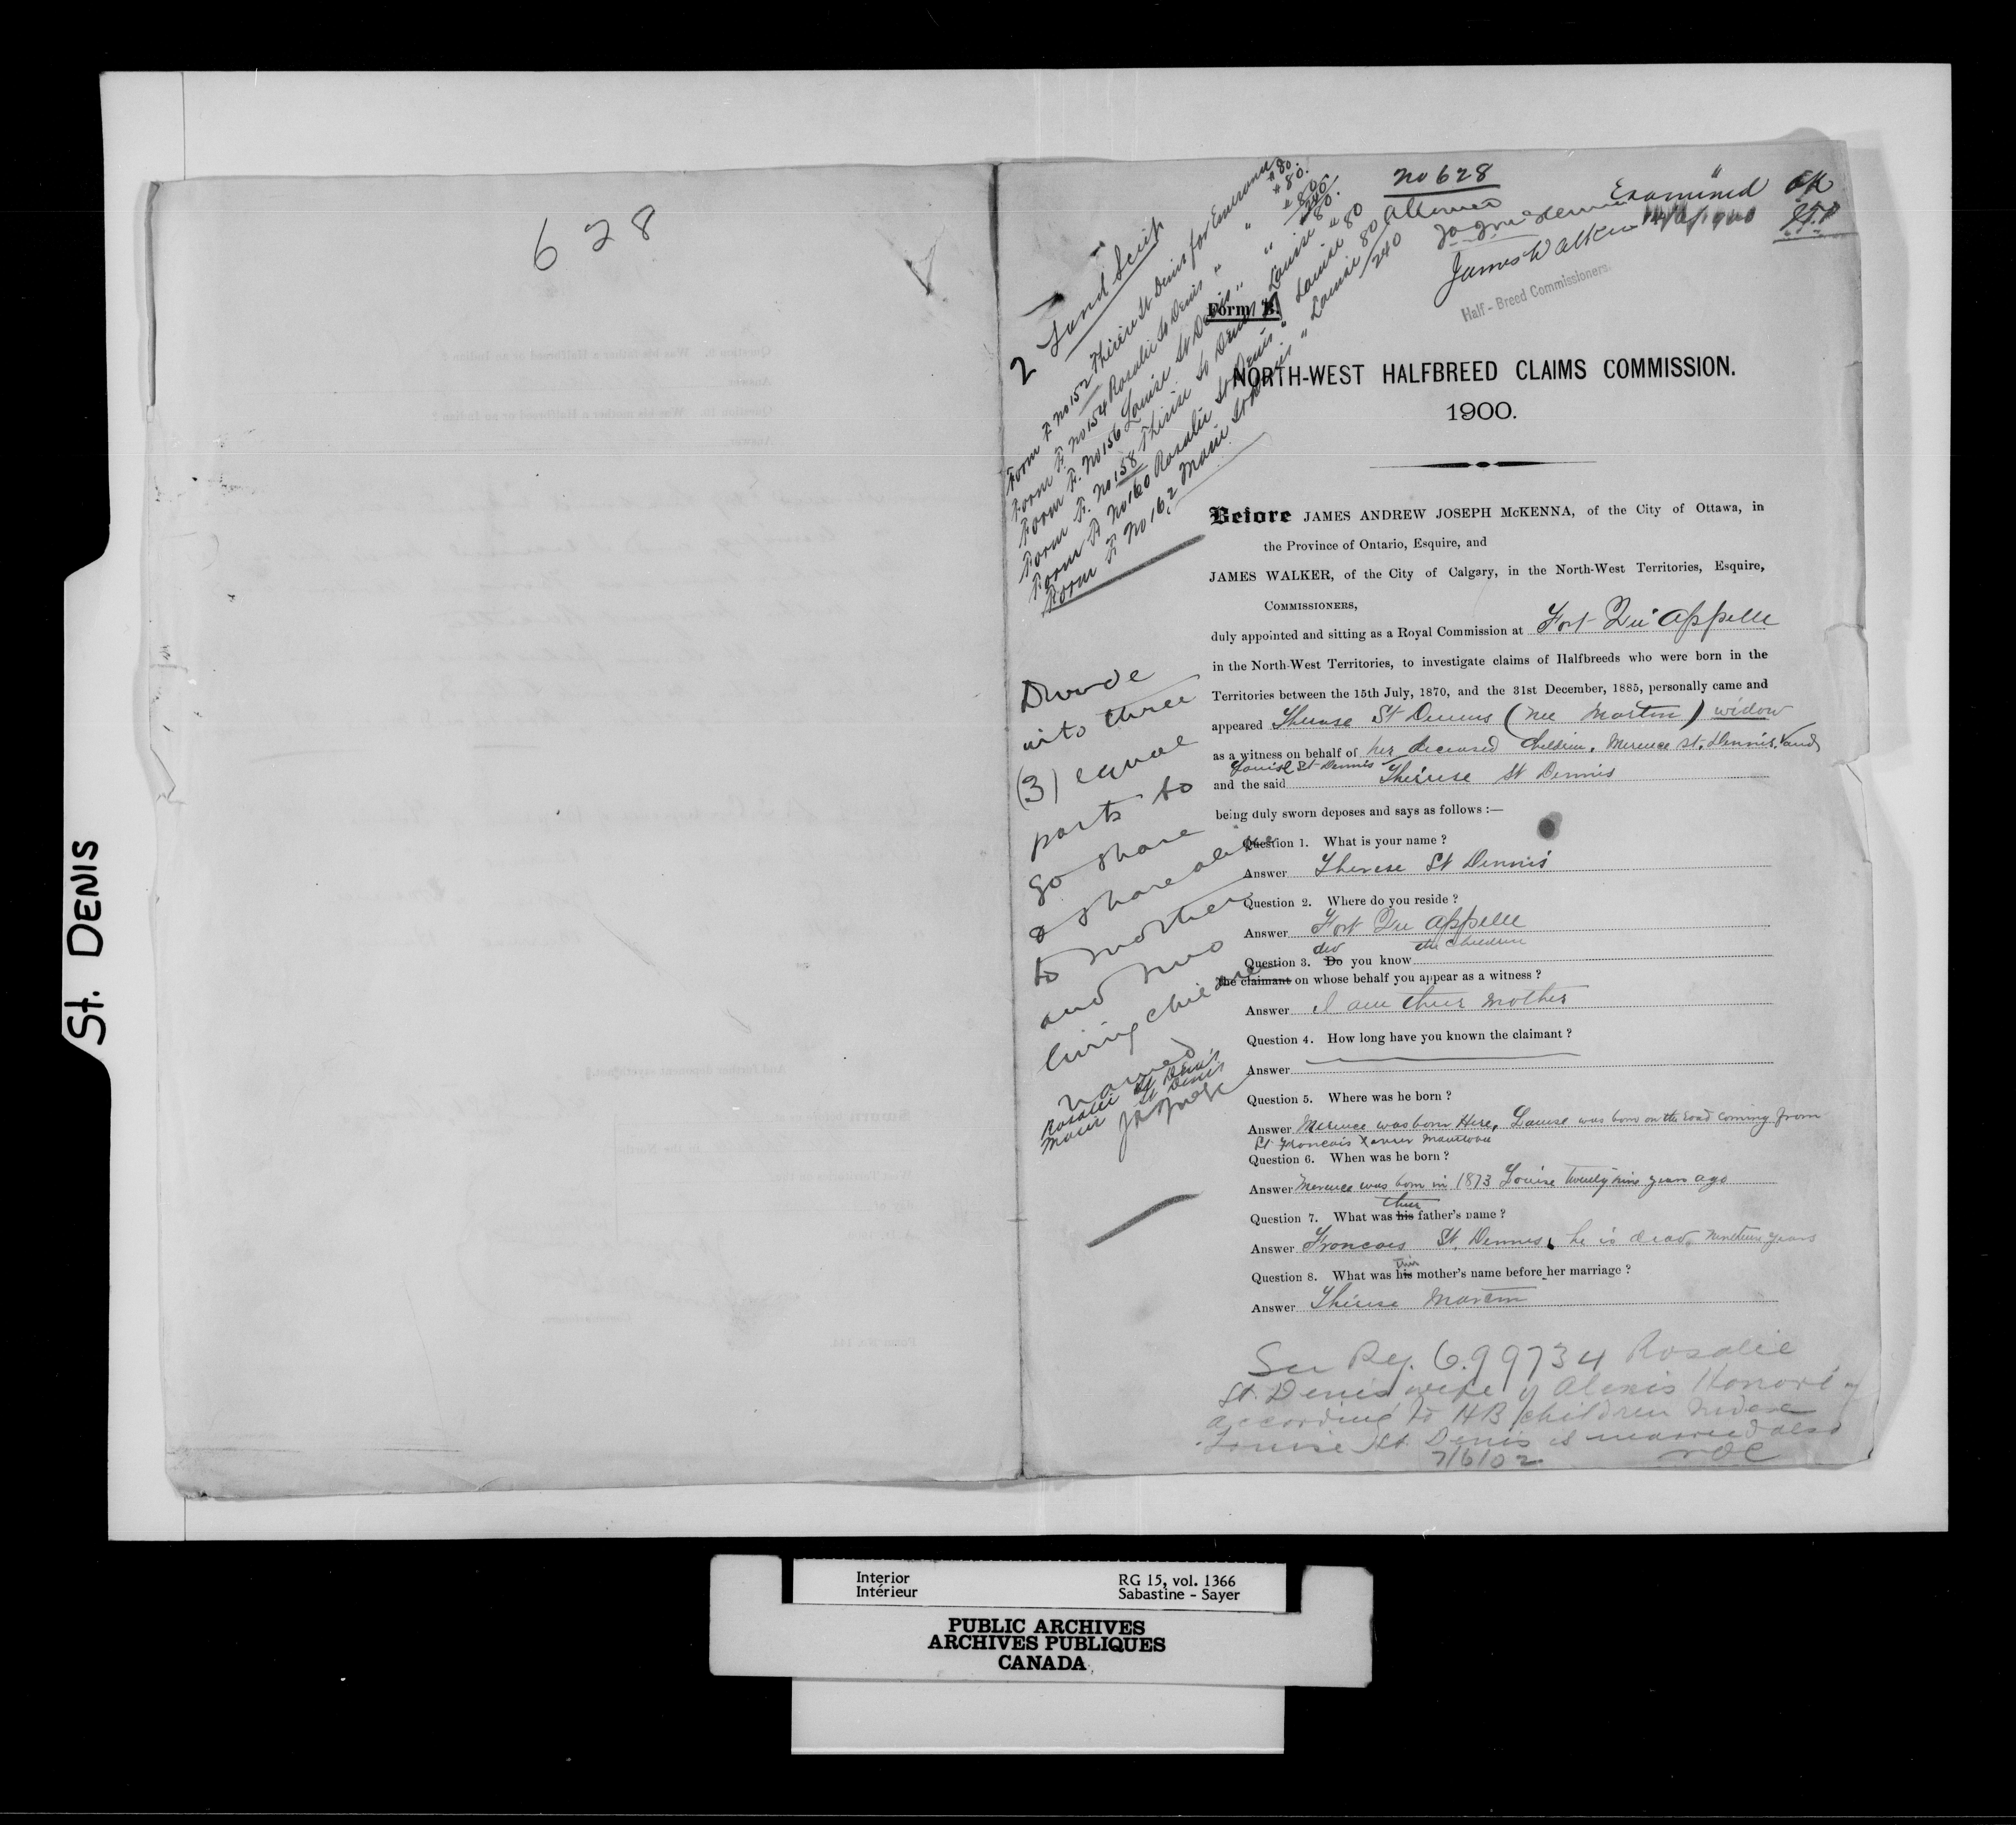 628
St. DENIS
No 628
Allowed
Examined OK
James Walker
Half-Breed Commissioners.
2 Land Scrip
Form F. No 152 Thérèse St Denis for Emerance $80.
Form F. No 154 Rosalie St Denis " " $80.
Form F. No 156 Louise St Denis " " $80
240
Form F. No 158 Thérèse St Denis for Louise $80.
Form F. No 160 Rosalie St Denis " Louise 80
Form F. No 162 Marie St Denis " Louise 80
240
Form E.
NORTH-WEST HALFBREED CLAIMS COMMISSION.
1900.
Before JAMES ANDREW JOSEPH McKENNA, of the City of Ottawa, in
the Province of Ontario, Esquire, and
JAMES WALKER, of the City of Calgary, in the North-West Territories, Esquire,
COMMISSIONERS,
duly appointed and sitting as a Royal Commission at Fort Qu'Appelle
in the North-West Territories, to investigate claims of Halfbreeds who were born in the
Territories between the 15th July, 1870, and the 31st December, 1885, personally came and
appeared Therese St Dennis (nee Martin) widow
as a witness on behalf of her deceased children, Merence St. Dennis, and
Louise St Dennis
and the said Therese St Dennis
being duly sworn deposes and says as follows :—
Question 1. What is your name ?
Answer Therese St Dennis
Question 2. Where do you reside ?
Answer Fort Qu Appelle
did the children
Question 3. Do you know
the claimant on whose behalf you appear as a witness ?
Answer I am their mother
Question 4. How long have you known the claimant ?
Answer
Question 5. Where was he born ?
Answer Merence was born Here, Louise was born on the road coming from
St Francois Xavier Manitoba
Question 6. When was he born ?
Answer Merence was born in 1873 Louise twenty nine years ago
their
Question 7. What was his father's name ?
Answer Francois St. Dennis, he is dead nineteen years
their
Question 8. What was his mother's name before her marriage ?
Answer Thérese Martin
Divide
into three
(3) equal
parts to
go share
& share alike
to mother
and two
living children
named
Rosalie St Denis
Marie St Denis
See Reg. 699734 Rosalie
St. Denis wife of Alexis Honoré
according to HB children Index
Louise St Denis is married also
7/6/02
Interior
Intérieur
RG 15, vol. 1366
Sabastine - Sayer
PUBLIC ARCHIVES
ARCHIVES PUBLIQUES
CANADA